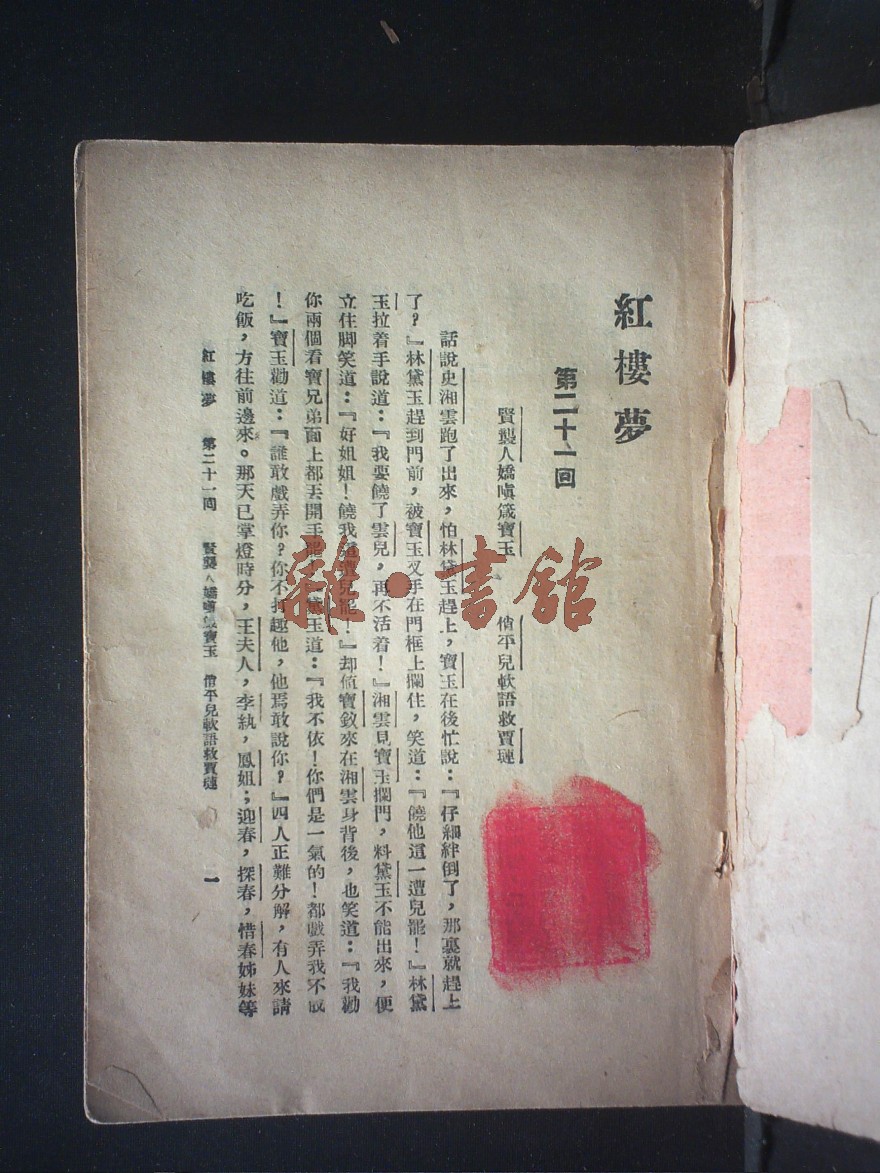 紅樓夢
第二十一回
賢襲人嬌嗔箴寶玉　俏平兒軟語救賈璉
話說史湘雲跑了出來，怕林黛玉趕上，寶玉在後忙說：『仔細絆倒了，那裏就趕上
了？』林黛玉趕到門前，被寶玉叉手在門框上攔住，笑道：『饒他這一遭兒罷！』林黛
玉拉着手說道：『我要饒了雲兒，再不活着！』湘雲見寶玉攔門，料黛玉不能出來，便
立住脚笑道：『好姐姐！饒我這遭兒罷！』却值寶釵來在湘雲身背後，也笑道：『我勸
你兩個看寶兄弟面上都丟開手罷！』黛玉道：『我不依！你們是一氣的！都戲弄我不成
！』寶玉勸道：『誰敢戲弄你？你不打趣他，他焉敢說你？』四人正難分解，有人來請
吃飯，方往前邊來。那天已掌燈時分，王夫人，李紈，鳳姐；迎春，探春，惜春姊妹等
紅樓夢　第二十一回　賢襲人嬌嗔箴寶玉　俏平兒軟語救賈璉　一
雜·書館